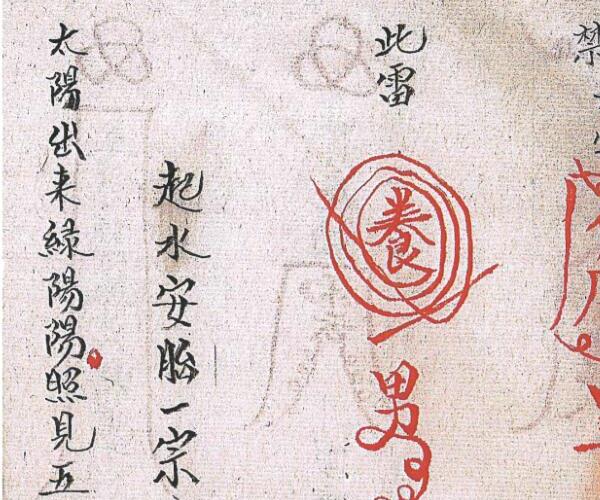 禁
此雷
養
男
起水安胎一宗
太陽出来緑陽陽照見五